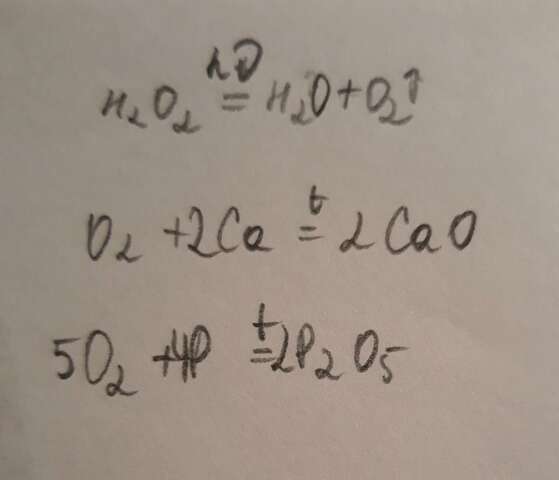 H₂O₂ =^{hν} H₂O + O₂↑
O₂ + 2Ca =^{t} 2CaO
5O₂ + 4P =^{t} 2P₂O₅